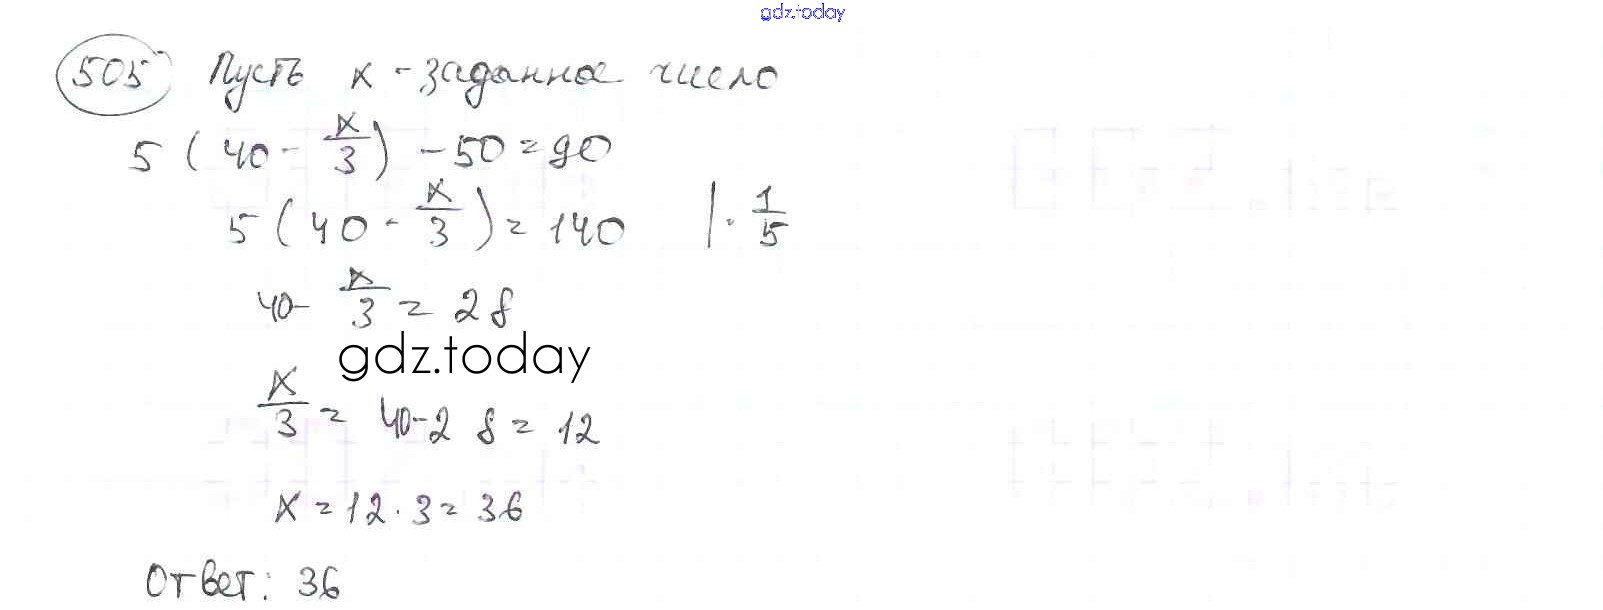 gdz.today
505 Пусть x - заданное число
5 ( 40 - x/3 ) - 50 = 90
5 ( 40 - x/3 ) = 140 | · 1/5
40 - x/3 = 28
gdz.today
x/3 = 40 - 28 = 12
x = 12 · 3 = 36
Ответ: 36